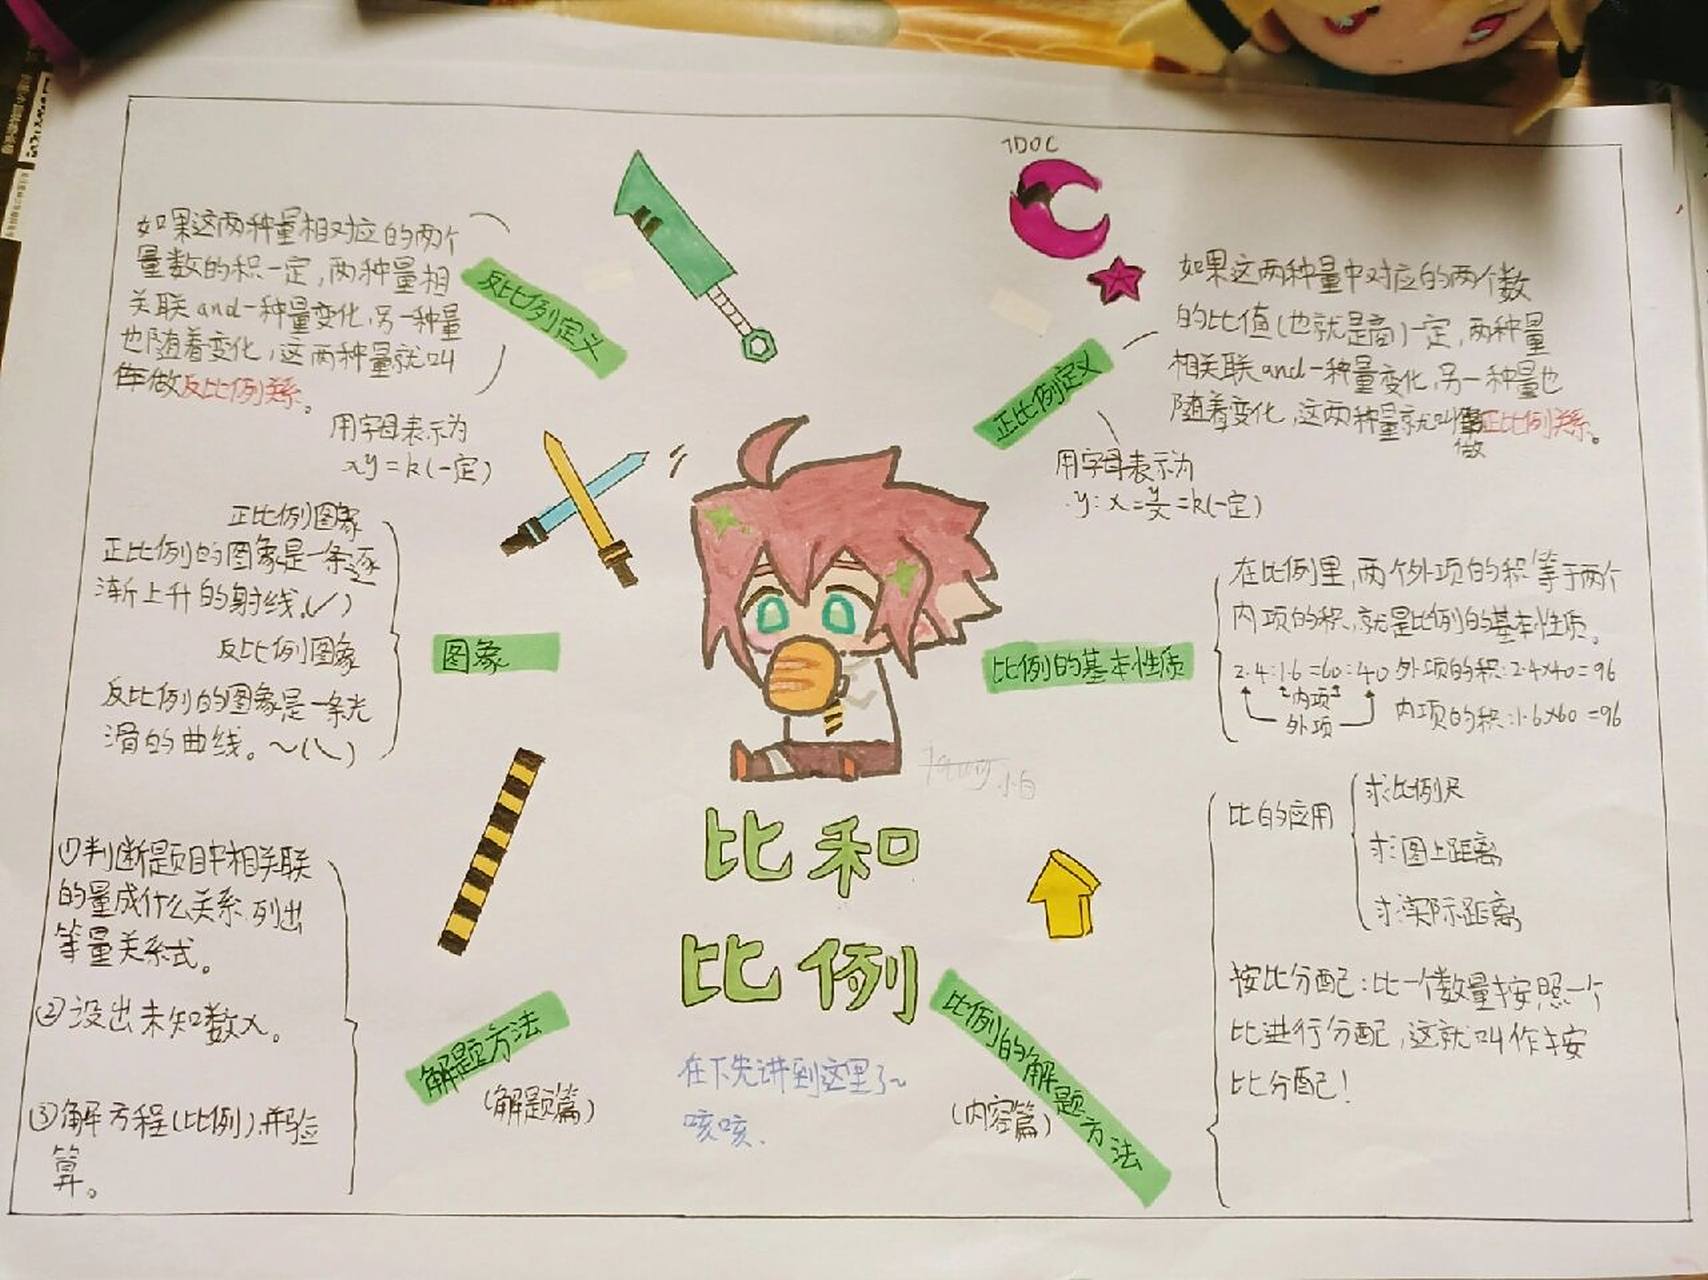 如果这两种量相对应的两个
量数的积一定,两种量相
关联and一种量变化,另一种量
也随着变化,这两种量就叫
做反比例关系。
反比例定义
用字母表示为
xy=k(一定)
正比例图象
正比例的图象是一条逐
渐上升的射线。(/)
反比例图象
反比例的图象是一条光
滑的曲线。~(\)
图象
①判断题目中相关联
的量成什么关系,列出
等量关系式。
②设出未知数x。
③解方程(比例),并验
算。
解题方法
(解题篇)
比和
比例
在下先讲到这里了~
咳咳.
小白
如果这两种量中对应的两个数
的比值(也就是商)一定,两种量
相关联and一种量变化,另一种量也
随着变化,这两种量就叫做正比例关系。
正比例定义
用字母表示为
y:x=y/x=k(一定)
比例的基本性质
在比例里,两个外项的积等于两个
内项的积,就是比例的基本性质。
2.4:1.6=60:40 外项的积:2.4×40=96
内项
外项
内项的积:1.6×60=96
比例的解题方法
(内容篇)
比的应用
求比例尺
求图上距离
求实际距离
按比分配:比一个数量按照一个
比进行分配,这就叫作按
比分配!